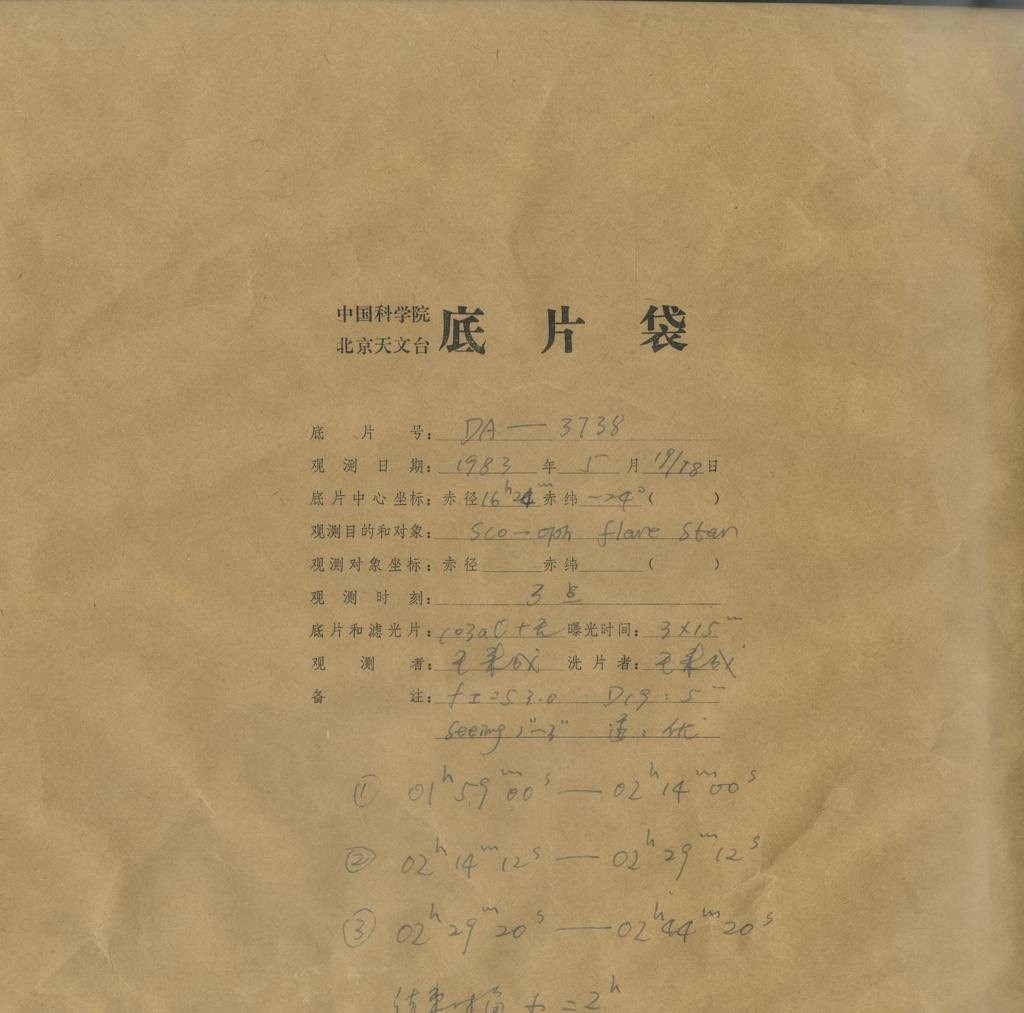 中国科学院
北京天文台
底片袋
底片号: DA — 3738
观测日期: 1983 年 5 月 19/18 日
底片中心坐标: 赤径 16ʰ24ᵐ 赤纬 -24° ( )
观测目的和对象: Sco-oph flare star
观测对象坐标: 赤径 赤纬 ( )
观测时刻: 3
底片和滤光片: 103aO+ 曝光时间: 3×15ᵐ
观测者: 洗片者:
备注: fI=53.0 D19: 5ᵐ
Seeing 1"-3" 优
① 01ʰ59ᵐ00ˢ — 02ʰ14ᵐ00ˢ
② 02ʰ14ᵐ12ˢ — 02ʰ29ᵐ12ˢ
③ 02ʰ29ᵐ20ˢ — 02ʰ44ᵐ20ˢ
结束时角 t=2ʰ